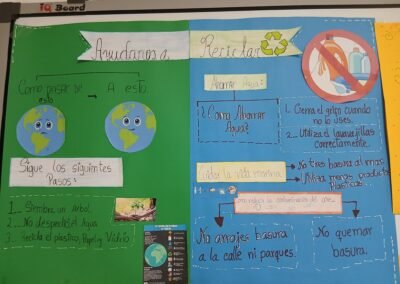 IQ Board
Ayudanos a
Reciclar
Como pasar de
esto
A esto
Sigue los siguientes
Pasos:
1... Siembre un arbol.
2... No desperdicie Agua
3... recicla el plastico, Papel y Vidrio
Ahorrar Agua:
¿Como Ahorrar
Agua?
1. Cierra el grifo cuando
no lo uses.
2... Utiliza el lavavajillas
correctamente.
Cuidar la vida marina
No tires basura al mar
Utiliza menos productos
Plasticos
No arrojes basura
a la calle ni parques.
No quemar
basura.